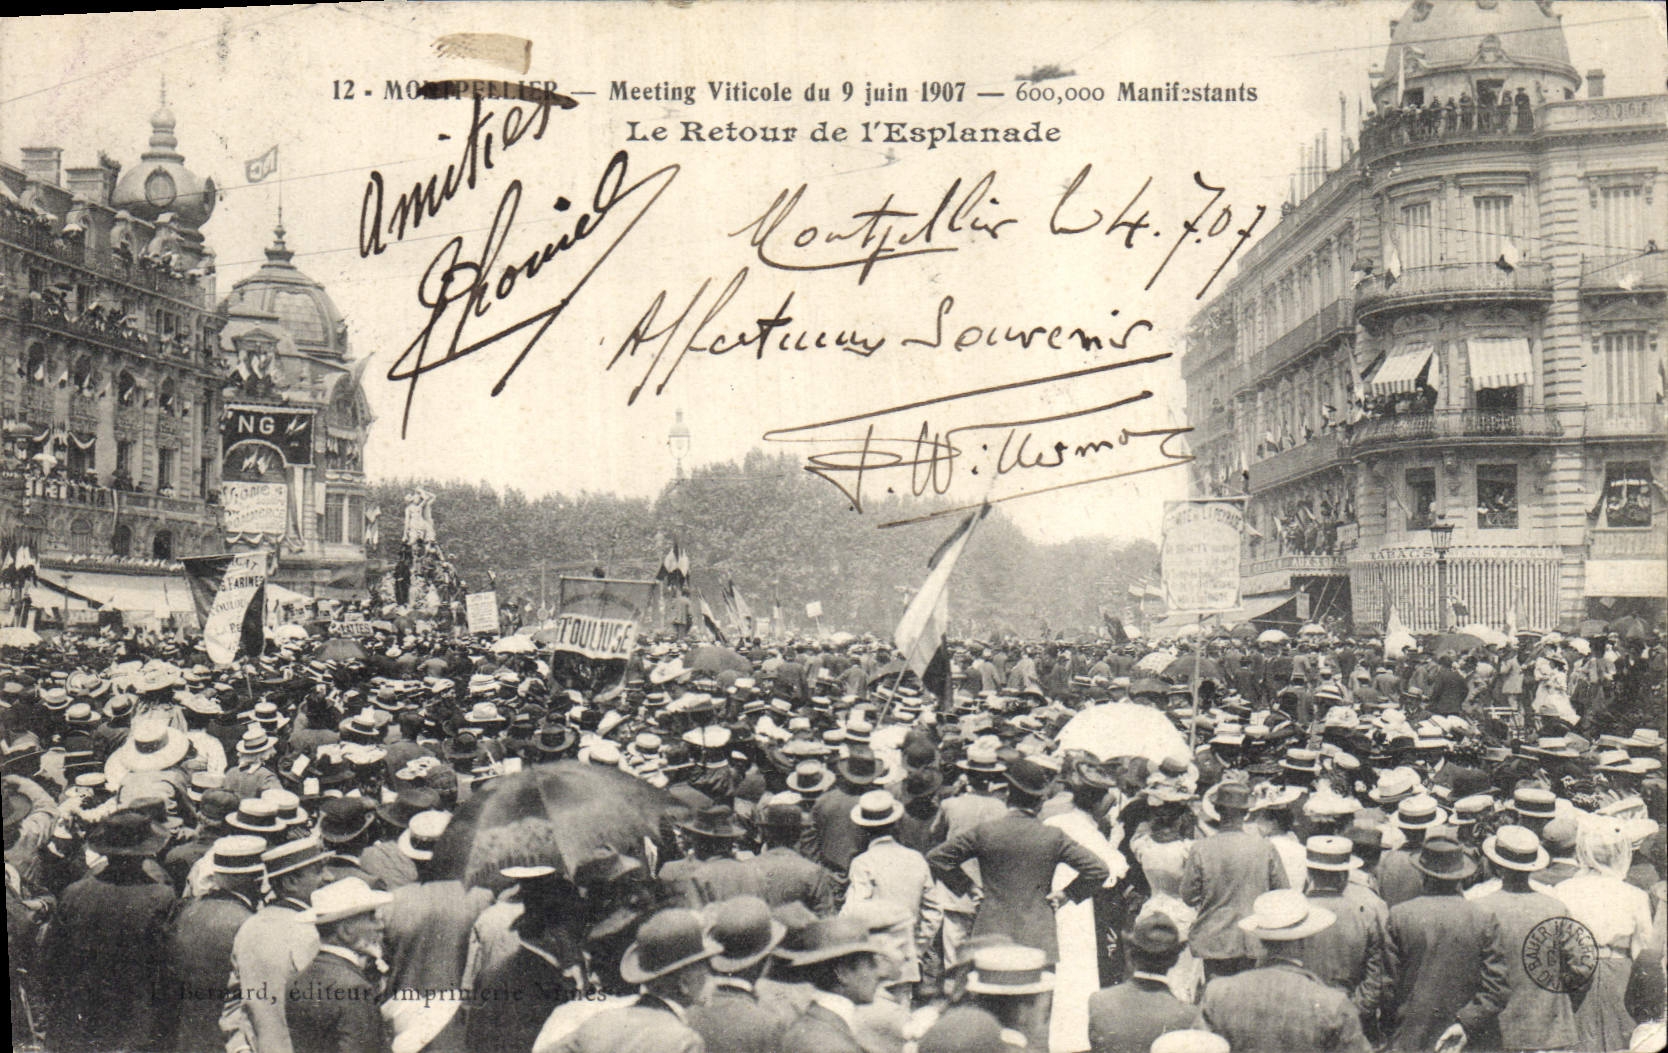 12 - MONTPELLIER — Meeting Viticole du 9 juin 1907 — 600,000 Manifestants
Le Retour de l'Esplanade
Amitiés
Montpellier le 4.7.07
Affectueux Souvenir
NG
TOULOUSE
TABACS
Bernard, éditeur, imprimerie Nimes
BAUER MARCHET